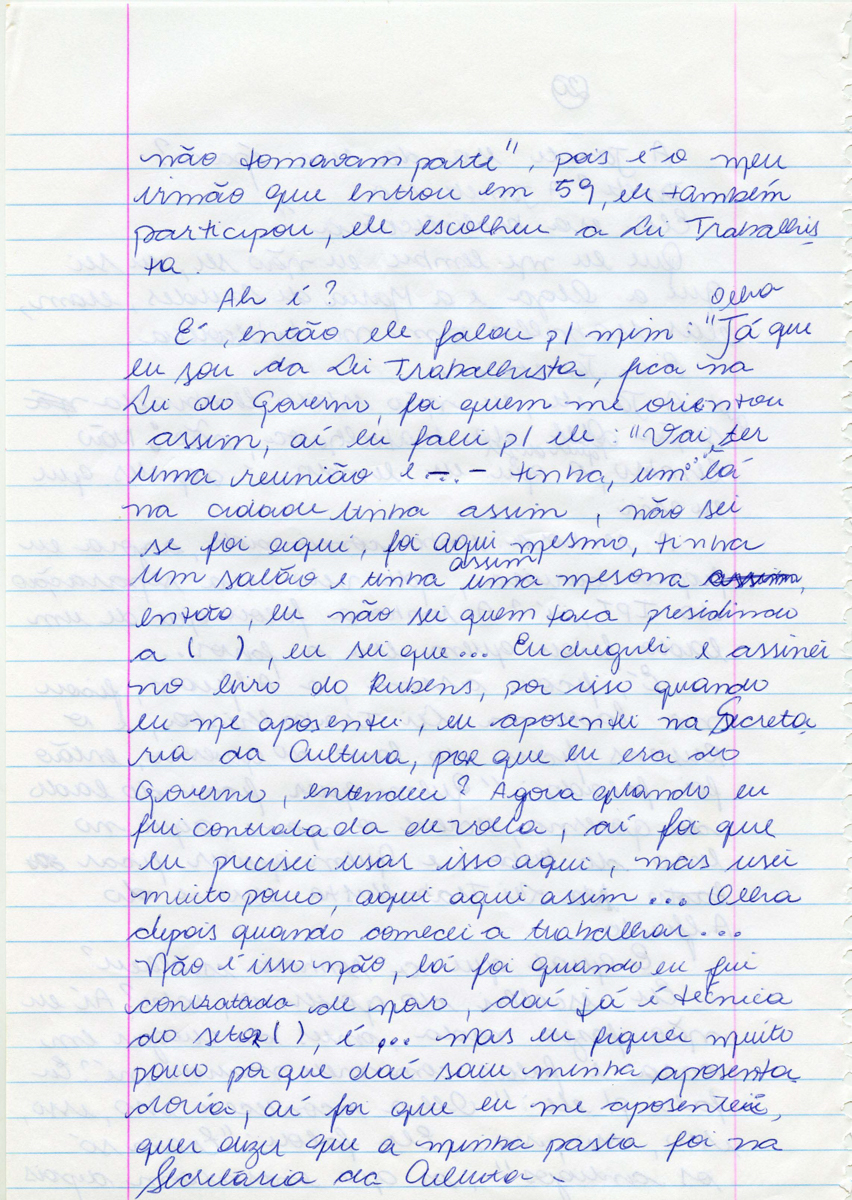 não tomavam parte", pois é o meu
irmão que entrou em 59, ele também
participou, ele escolheu a Lei Trabalhis
ta.
Ah é?
Olha
É, então ele falou p/ mim: "Já que
eu sou da Lei Trabalhista, fica na
Lei do Governo, foi quem me orientou
assim, aí eu falei p/ ele: "Vai ter
uma reunião e -.- tinha, um lá
na cidade tinha assim, não sei
se foi aqui, foi aqui mesmo, tinha
um salão e tinha assim uma mesona assim,
então, eu não sei quem tava presidindo
a ( ), eu sei que... Eu cheguei e assinei
no livro do Rubens, por isso quando
eu me aposentei, eu aposentei na Secreta
ria da Cultura, porque eu era do
Governo, entendeu? Agora quando eu
fui contratada de volta, aí foi que
eu precisei usar isso aqui, mas usei
muito pouco, aqui aqui assim... Olha
depois quando comecei a trabalhar...
Não é isso não, lá foi quando eu fui
contratada de novo, daí já é técnica
do setor ( ), é ... mas eu fiquei muito
pouco porque daí saiu minha aposenta
doria, aí foi que eu me aposentei,
quer dizer que a minha pasta foi na
Secretária da Cultura.